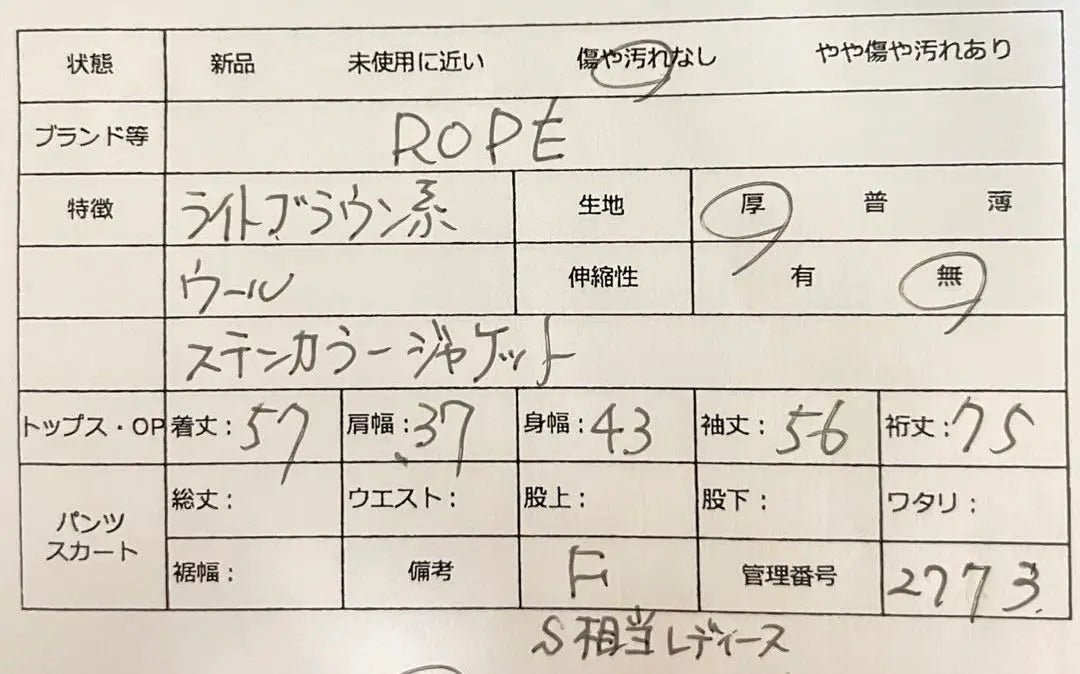 状態 新品 未使用に近い 傷や汚れなし やや傷や汚れあり
ブランド等 ROPE
特徴 ライトブラウン系 生地 厚 普 薄
ウール 伸縮性 有 無
ステンカラージャケット
トップス・OP 着丈:57 肩幅:37 身幅:43 袖丈:56 裄丈:75
パンツ 総丈: ウエスト: 股上: 股下: ワタリ:
スカート 裾幅: 備考 F 管理番号 2773
S相当レディース